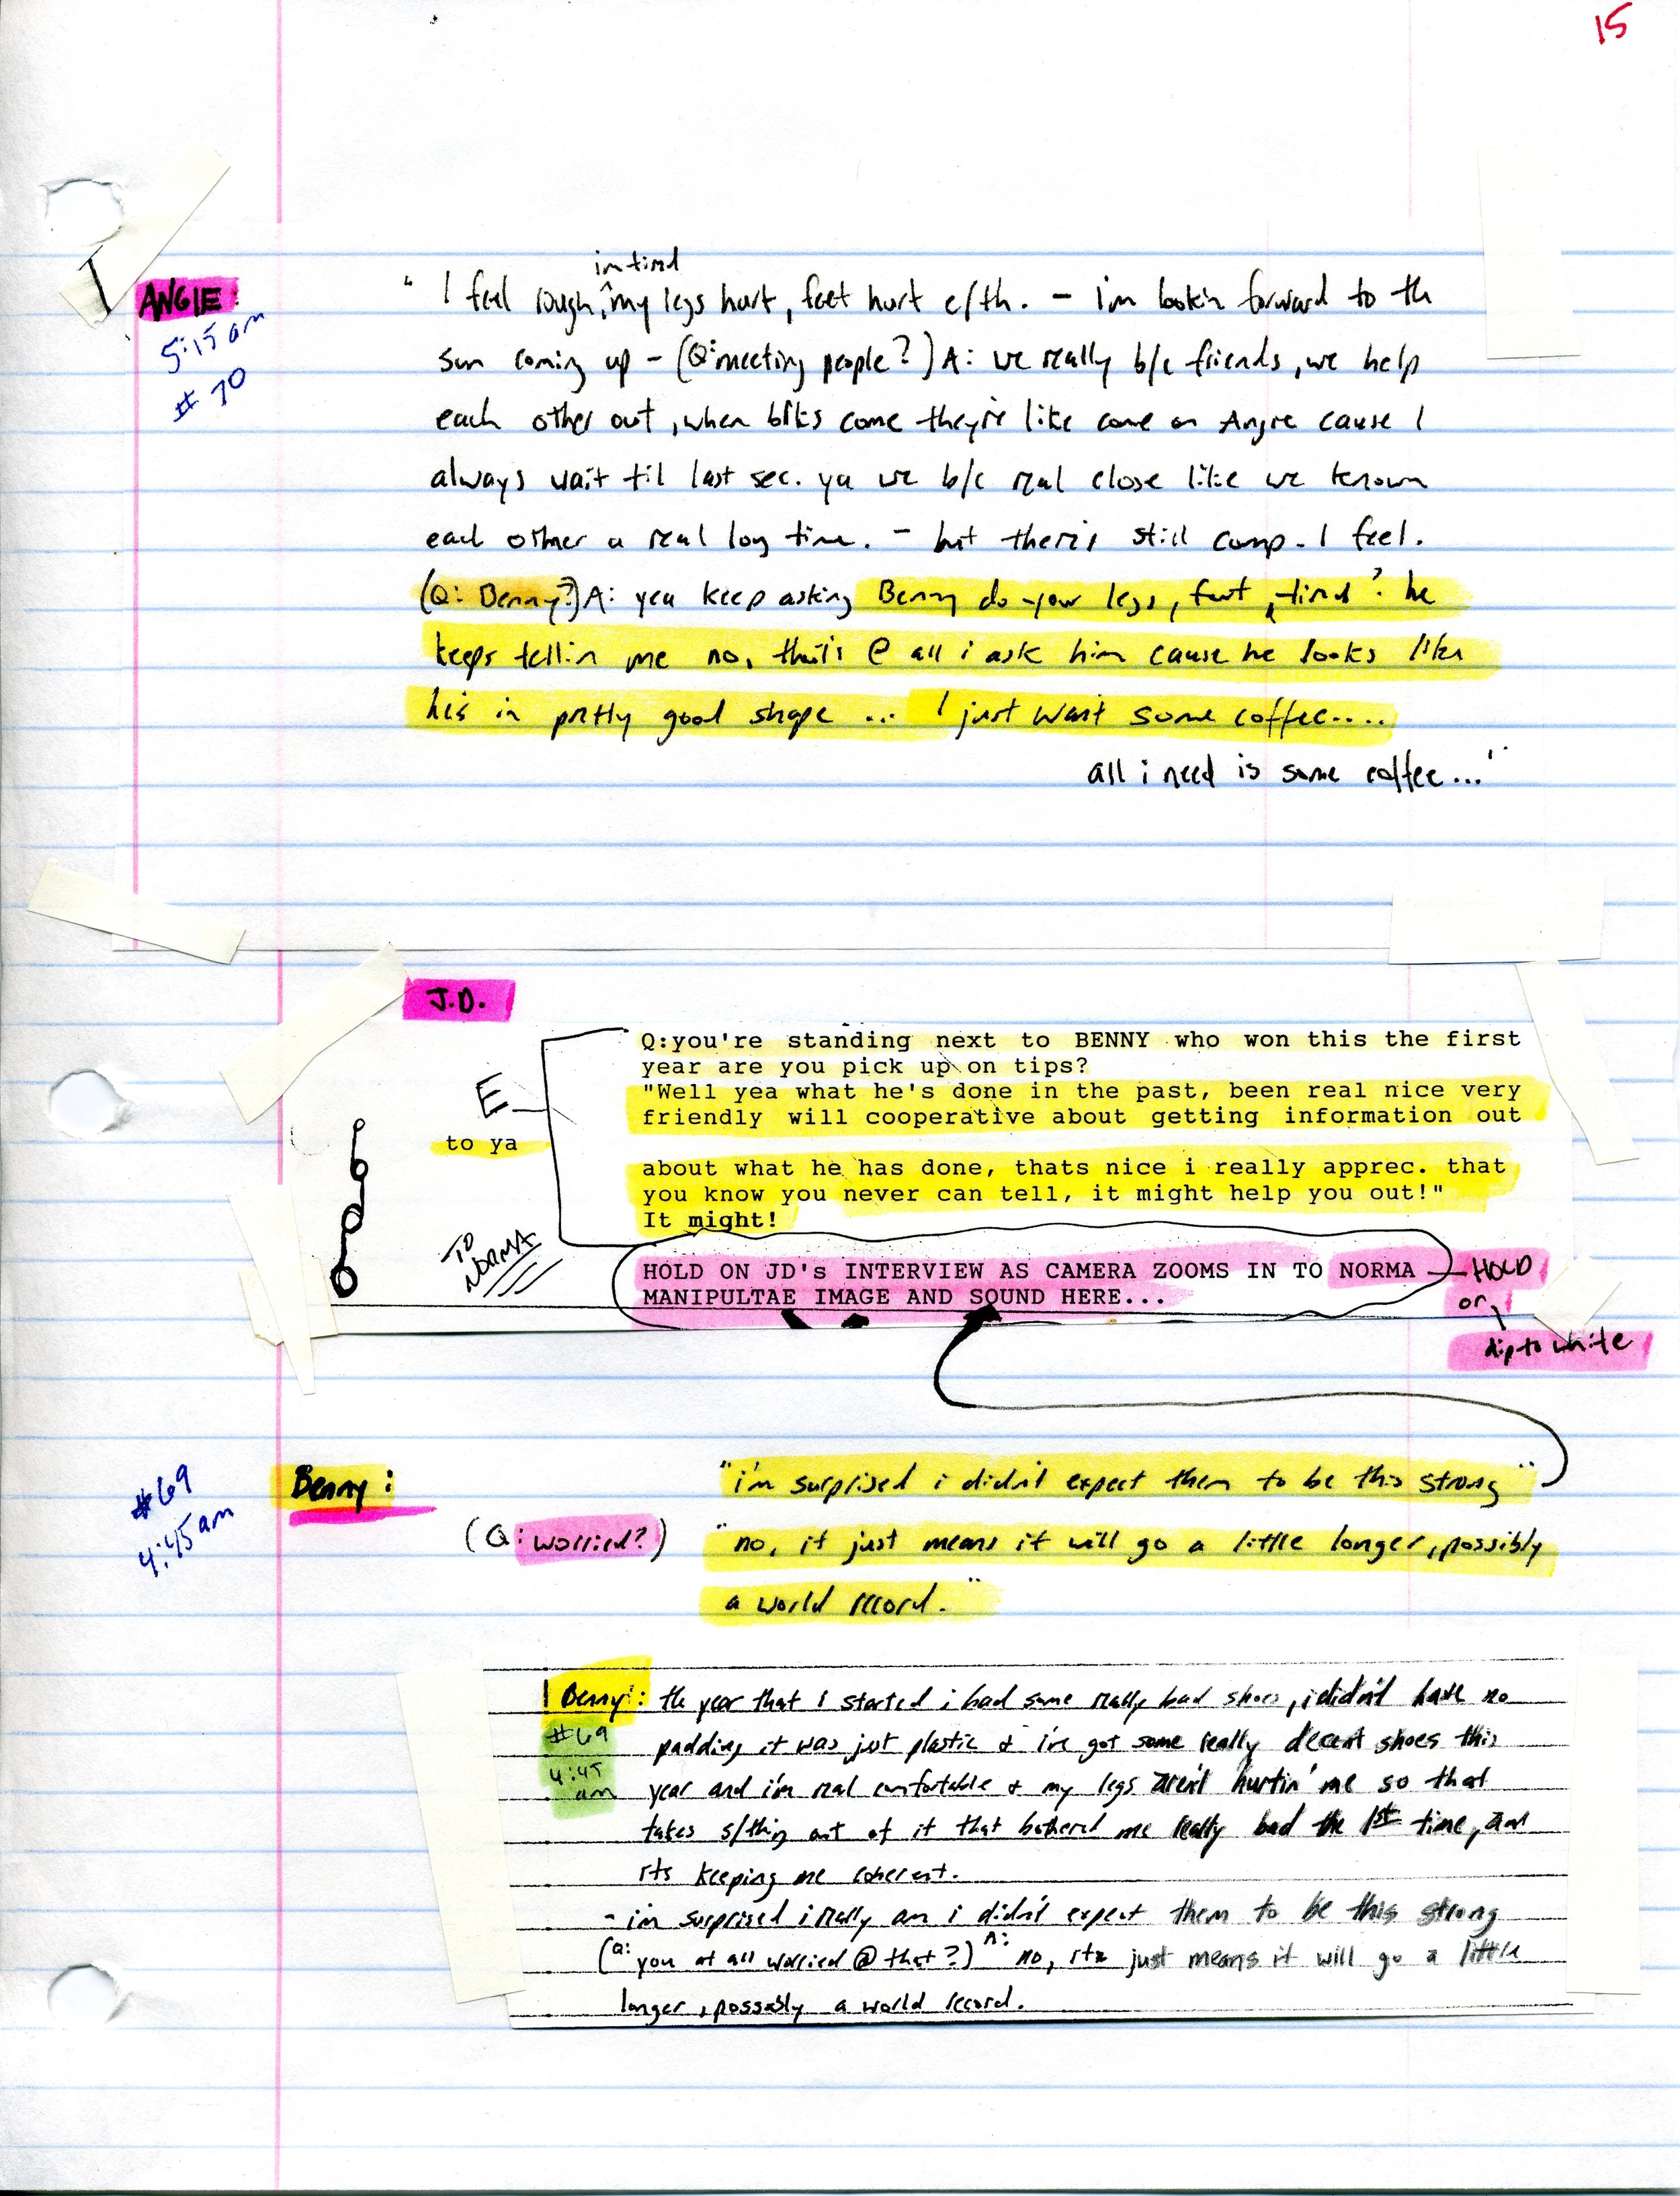 15
ANGIE:
5:15 am
# 70
im tired
" I feel rough, my legs hurt, feet hurt e/th. - im lookin forward to th
sun coming up - (Q: meeting people?) A: we really b/c friends, we help
each other out, when brks come they're like come on Angie cause I
always wait til last sec. ya we b/c real close like we known
each other a real long time. - but there's still comp. I feel.
(Q: Benny?) A: yea keep asking Benny do your legs, feet, tired? he
keeps tellin me no, that's @ all i ask him cause he looks like
his in pretty good shape ... I just want some coffee....
all i need is some coffee..."
J.D.
Q:you're standing next to BENNY who won this the first
year are you pick up on tips?
"Well yea what he's done in the past, been real nice very
friendly will cooperative about getting information out
E
to ya
about what he has done, thats nice i really apprec. that
you know you never can tell, it might help you out!"
It might!
TO
NORMA
HOLD ON JD's INTERVIEW AS CAMERA ZOOMS IN TO NORMA - HOLD
MANIPULTAE IMAGE AND SOUND HERE...
or
dip to white
#69
4:45 am
Benny:
"i'm surprised i didn't expect them to be this strong"
(Q: Worried?) "no, it just means it will go a little longer, possibly
a world record."
Benny: the year that I started i had some really bad shoes, i didn't have no
#69
padding it was just plastic & i've got some really decent shoes this
4:45
am
year and i'm real comfortable & my legs aren't hurtin' me so that
takes s/thing out of it that bothered me really bad the 1st time, and
its keeping me coherent.
- im surprised i really am i didn't expect them to be this strong
(Q: you at all worried @ that?) A: no, its just means it will go a little
longer, possably a world record.